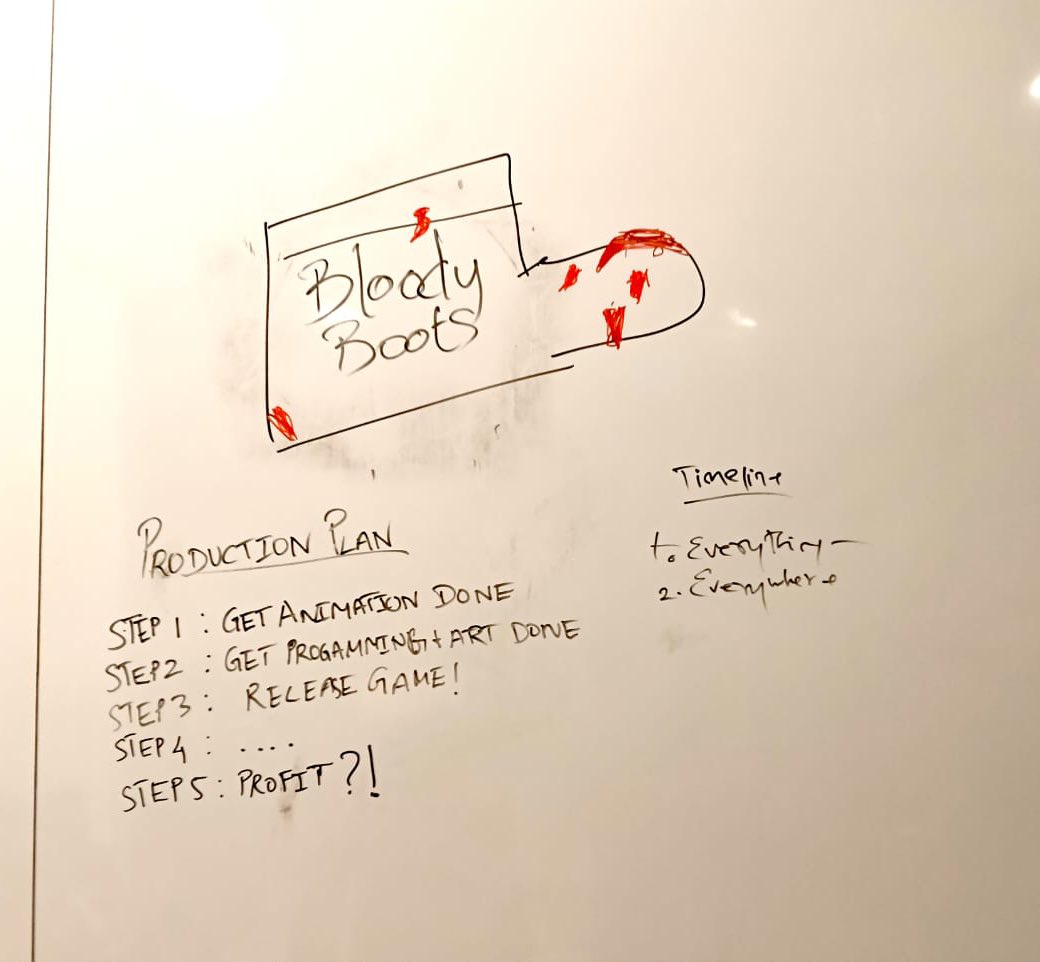 Bloody
Boots
PRODUCTION PLAN
STEP 1 : GET ANIMATION DONE
STEP 2 : GET PROGAMMING + ART DONE
STEP 3 : RELEASE GAME!
STEP 4 : ....
STEP 5 : PROFIT?!
Timeline
1. Everything
2. Everywhere